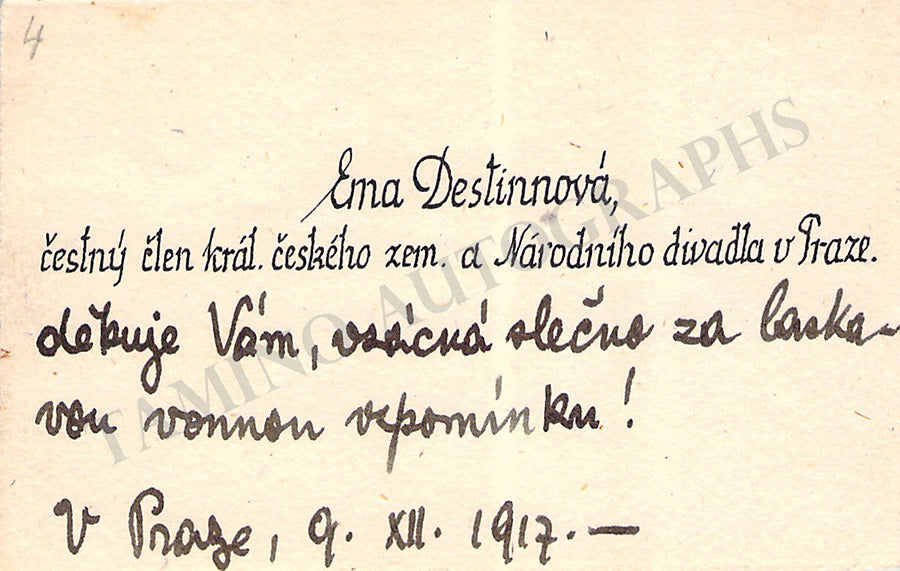 4
Ema Destinnová,
čestný člen král. českého zem. a Národního divadla v Praze.
děkuje Vám, vzácná slečno za laska-
vou vonnou vzpomínku!
V Praze, 9. XII. 1917. —
TAMINO AUTOGRAPHS